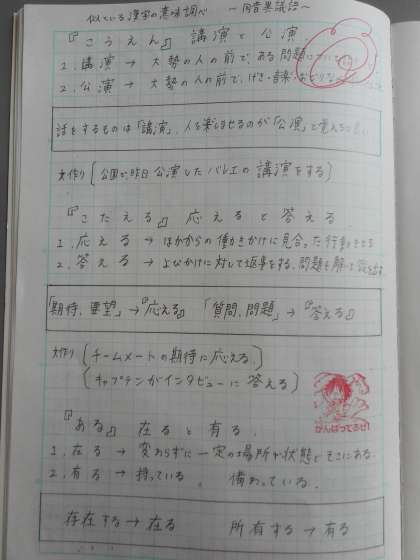 似ている漢字の意味調べ ～同音異議語～
『こうえん』 講演 と 公演
1. 講演 → 大勢の人の前で、ある問題について
2. 公演 → 大勢の人の前で、げき・音楽・おどりな
話をするものは「講演」、人を楽しませるのが「公演」と覚える
文作り〔公園で昨日公演したバレエの講演をする〕
『こたえる』 応える と 答える
1. 応える → ほかからの働きかけに見合った行動をする
2. 答える → よびかけに対して返事をする。問題を解いて
「期待、要望」→『応える』 「質問、問題」→『答える』
文作り〔チームメートの期待に応える。
〔キャプテンがインタビューに答える〕
がんばってるぜ!
『ある』 在る と 有る.
1. 在る → 変わらずに一定の場所や状態でそこにある.
2. 有る → 持っている。 備わっている.
存在する → 在る 所有する → 有る